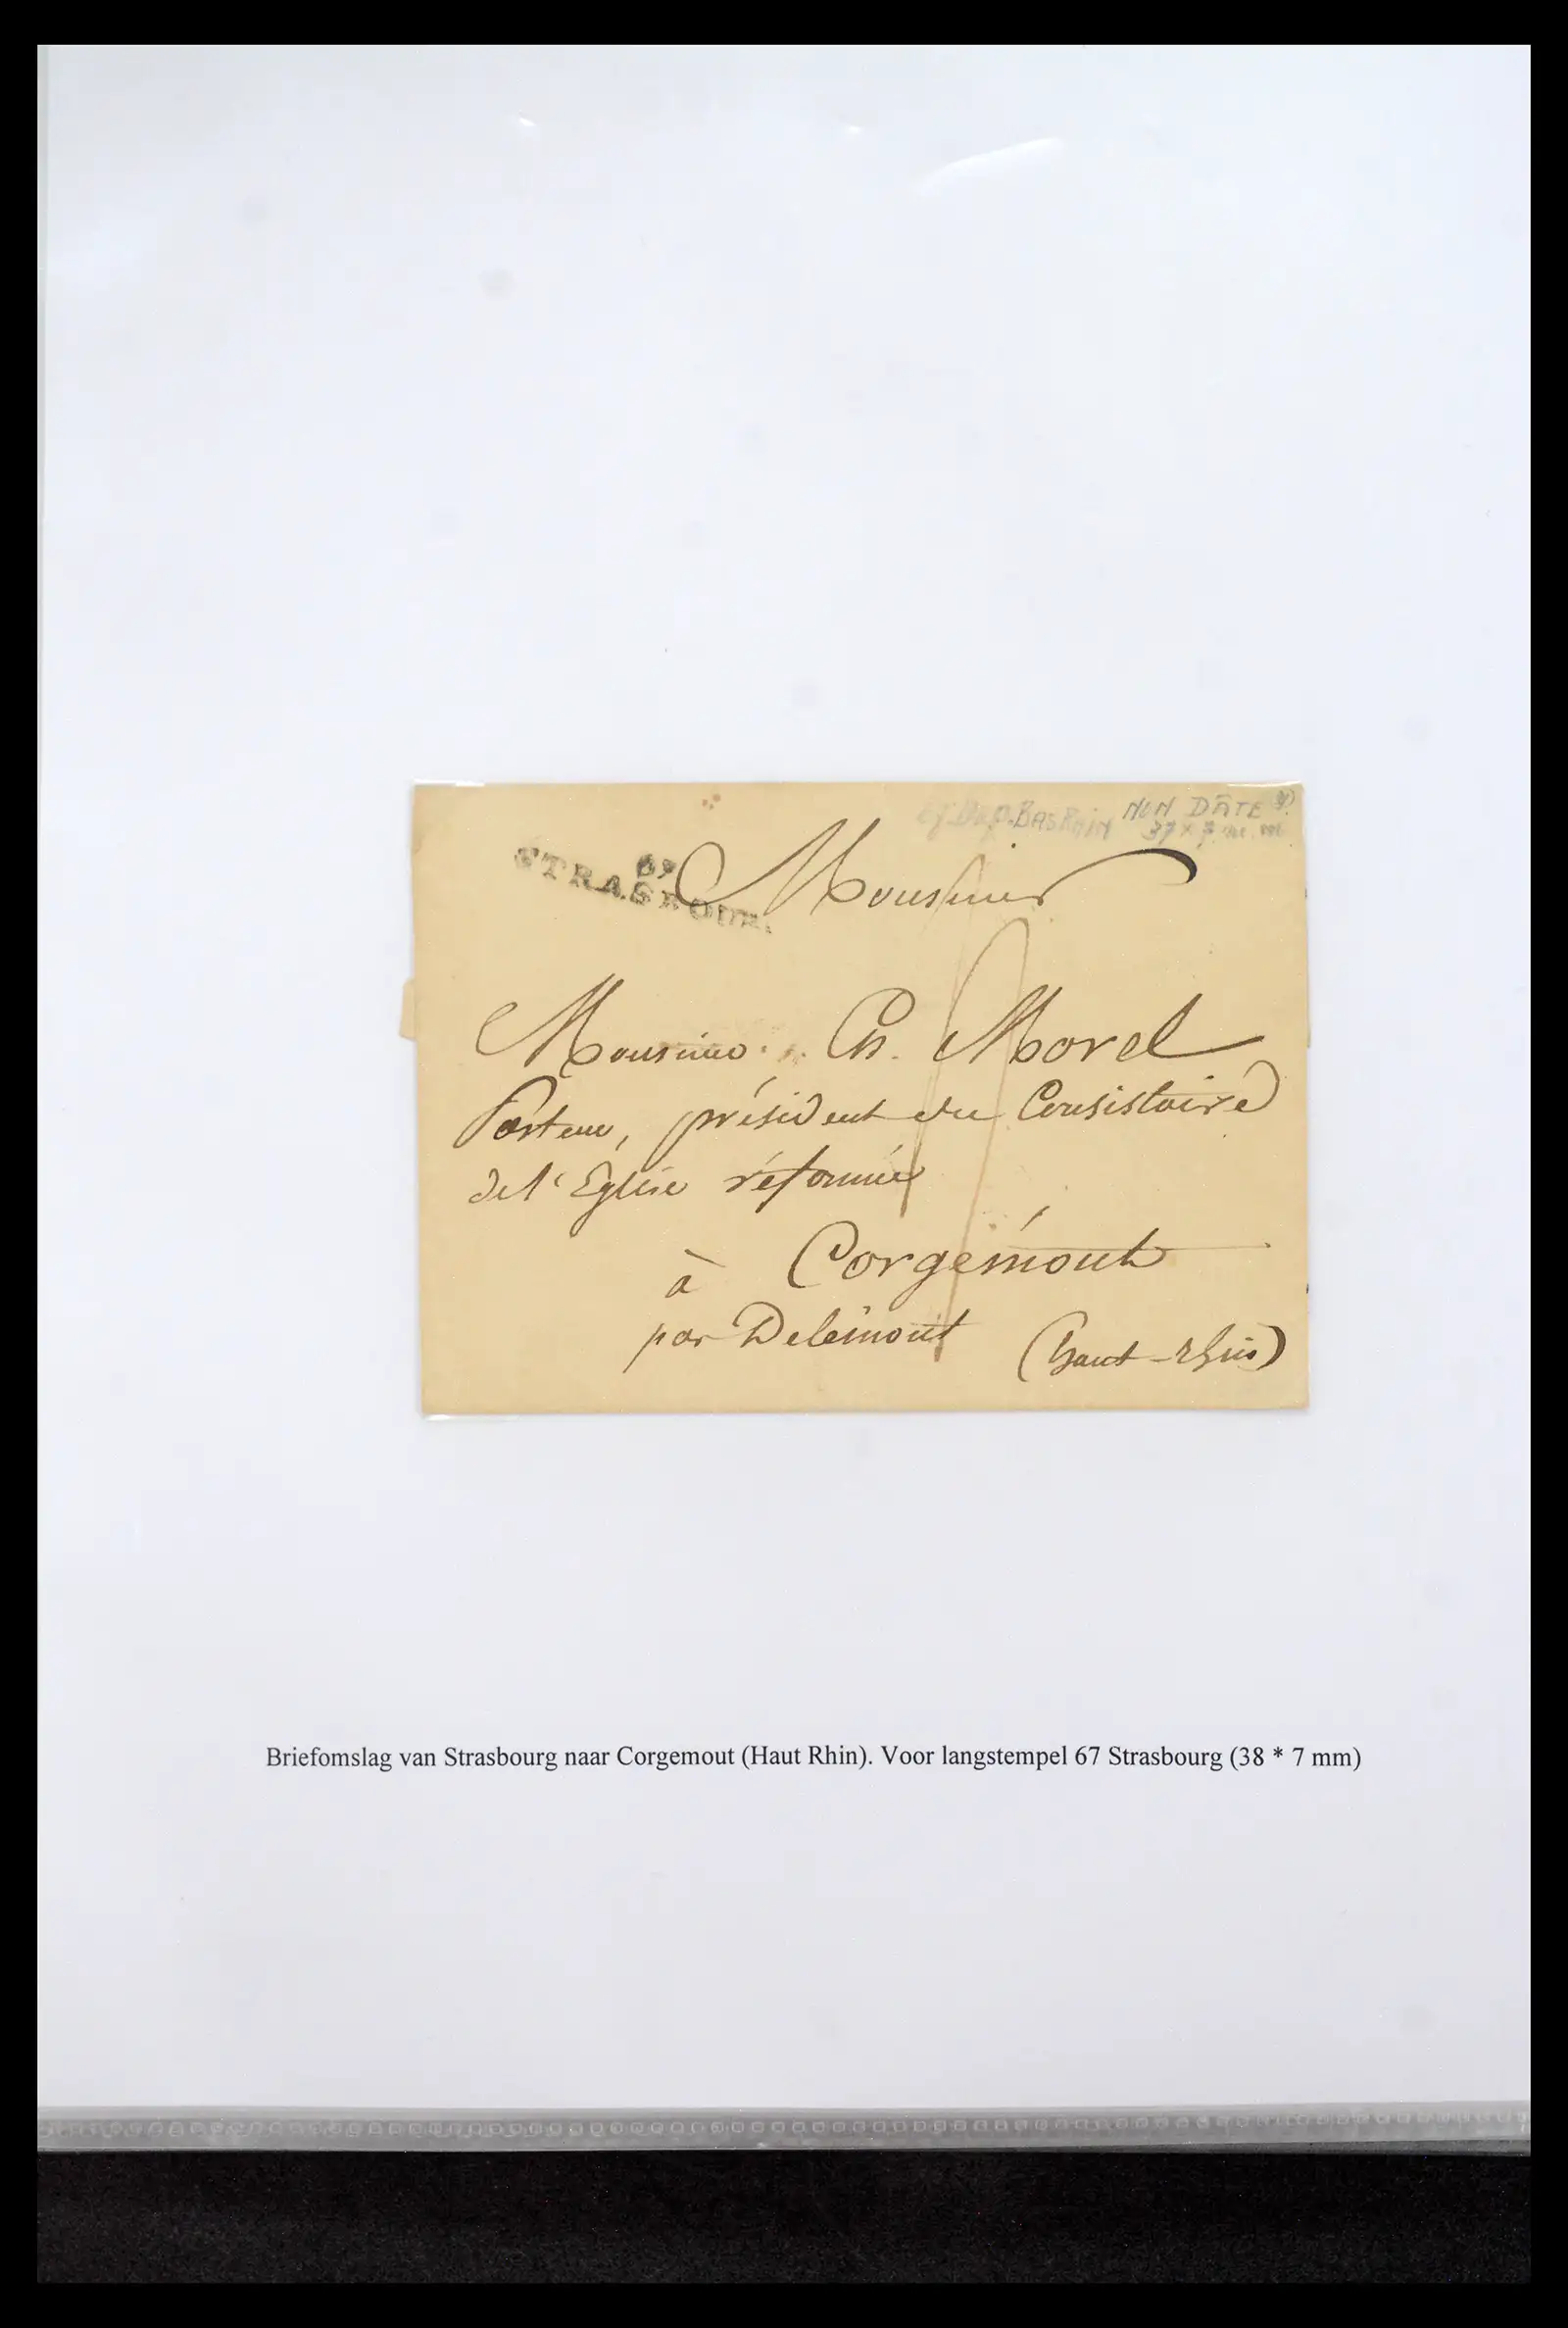 67 Dep. BAS RHIN NON DATÉ
37 x 7 m.m.
67
STRASBOURG.
Monsieur
Monsieur Ch. Morel
Pasteur, président du Consistoire
de l'Eglise réformée
à Corgémont
par Delémont (haut-rhin)
Briefomslag van Strasbourg naar Corgemout (Haut Rhin). Voor langstempel 67 Strasbourg (38 * 7 mm)